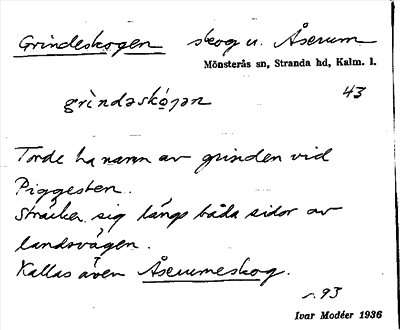 Grindeskogen skog u. Åserum
Mönsterås sn, Stranda hd, Kalm. l.
43
grìndəskó̱gən
Torde ha namn av grinden vid
Piggesten.
Sträcker sig längs båda sidor av
landsvägen.
Kallas även Åserumeskog.
s. 93
Ivar Modéer 1936